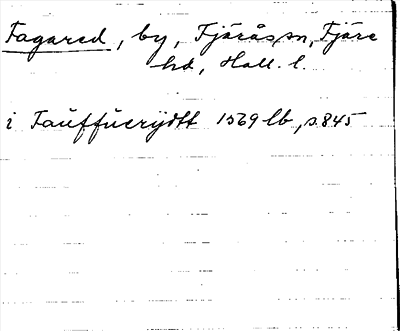 Fagared, by, Fjärås sn, Fjäre
hd, Hall. l.
i Fauffuerydtt 1569 lb, s 845